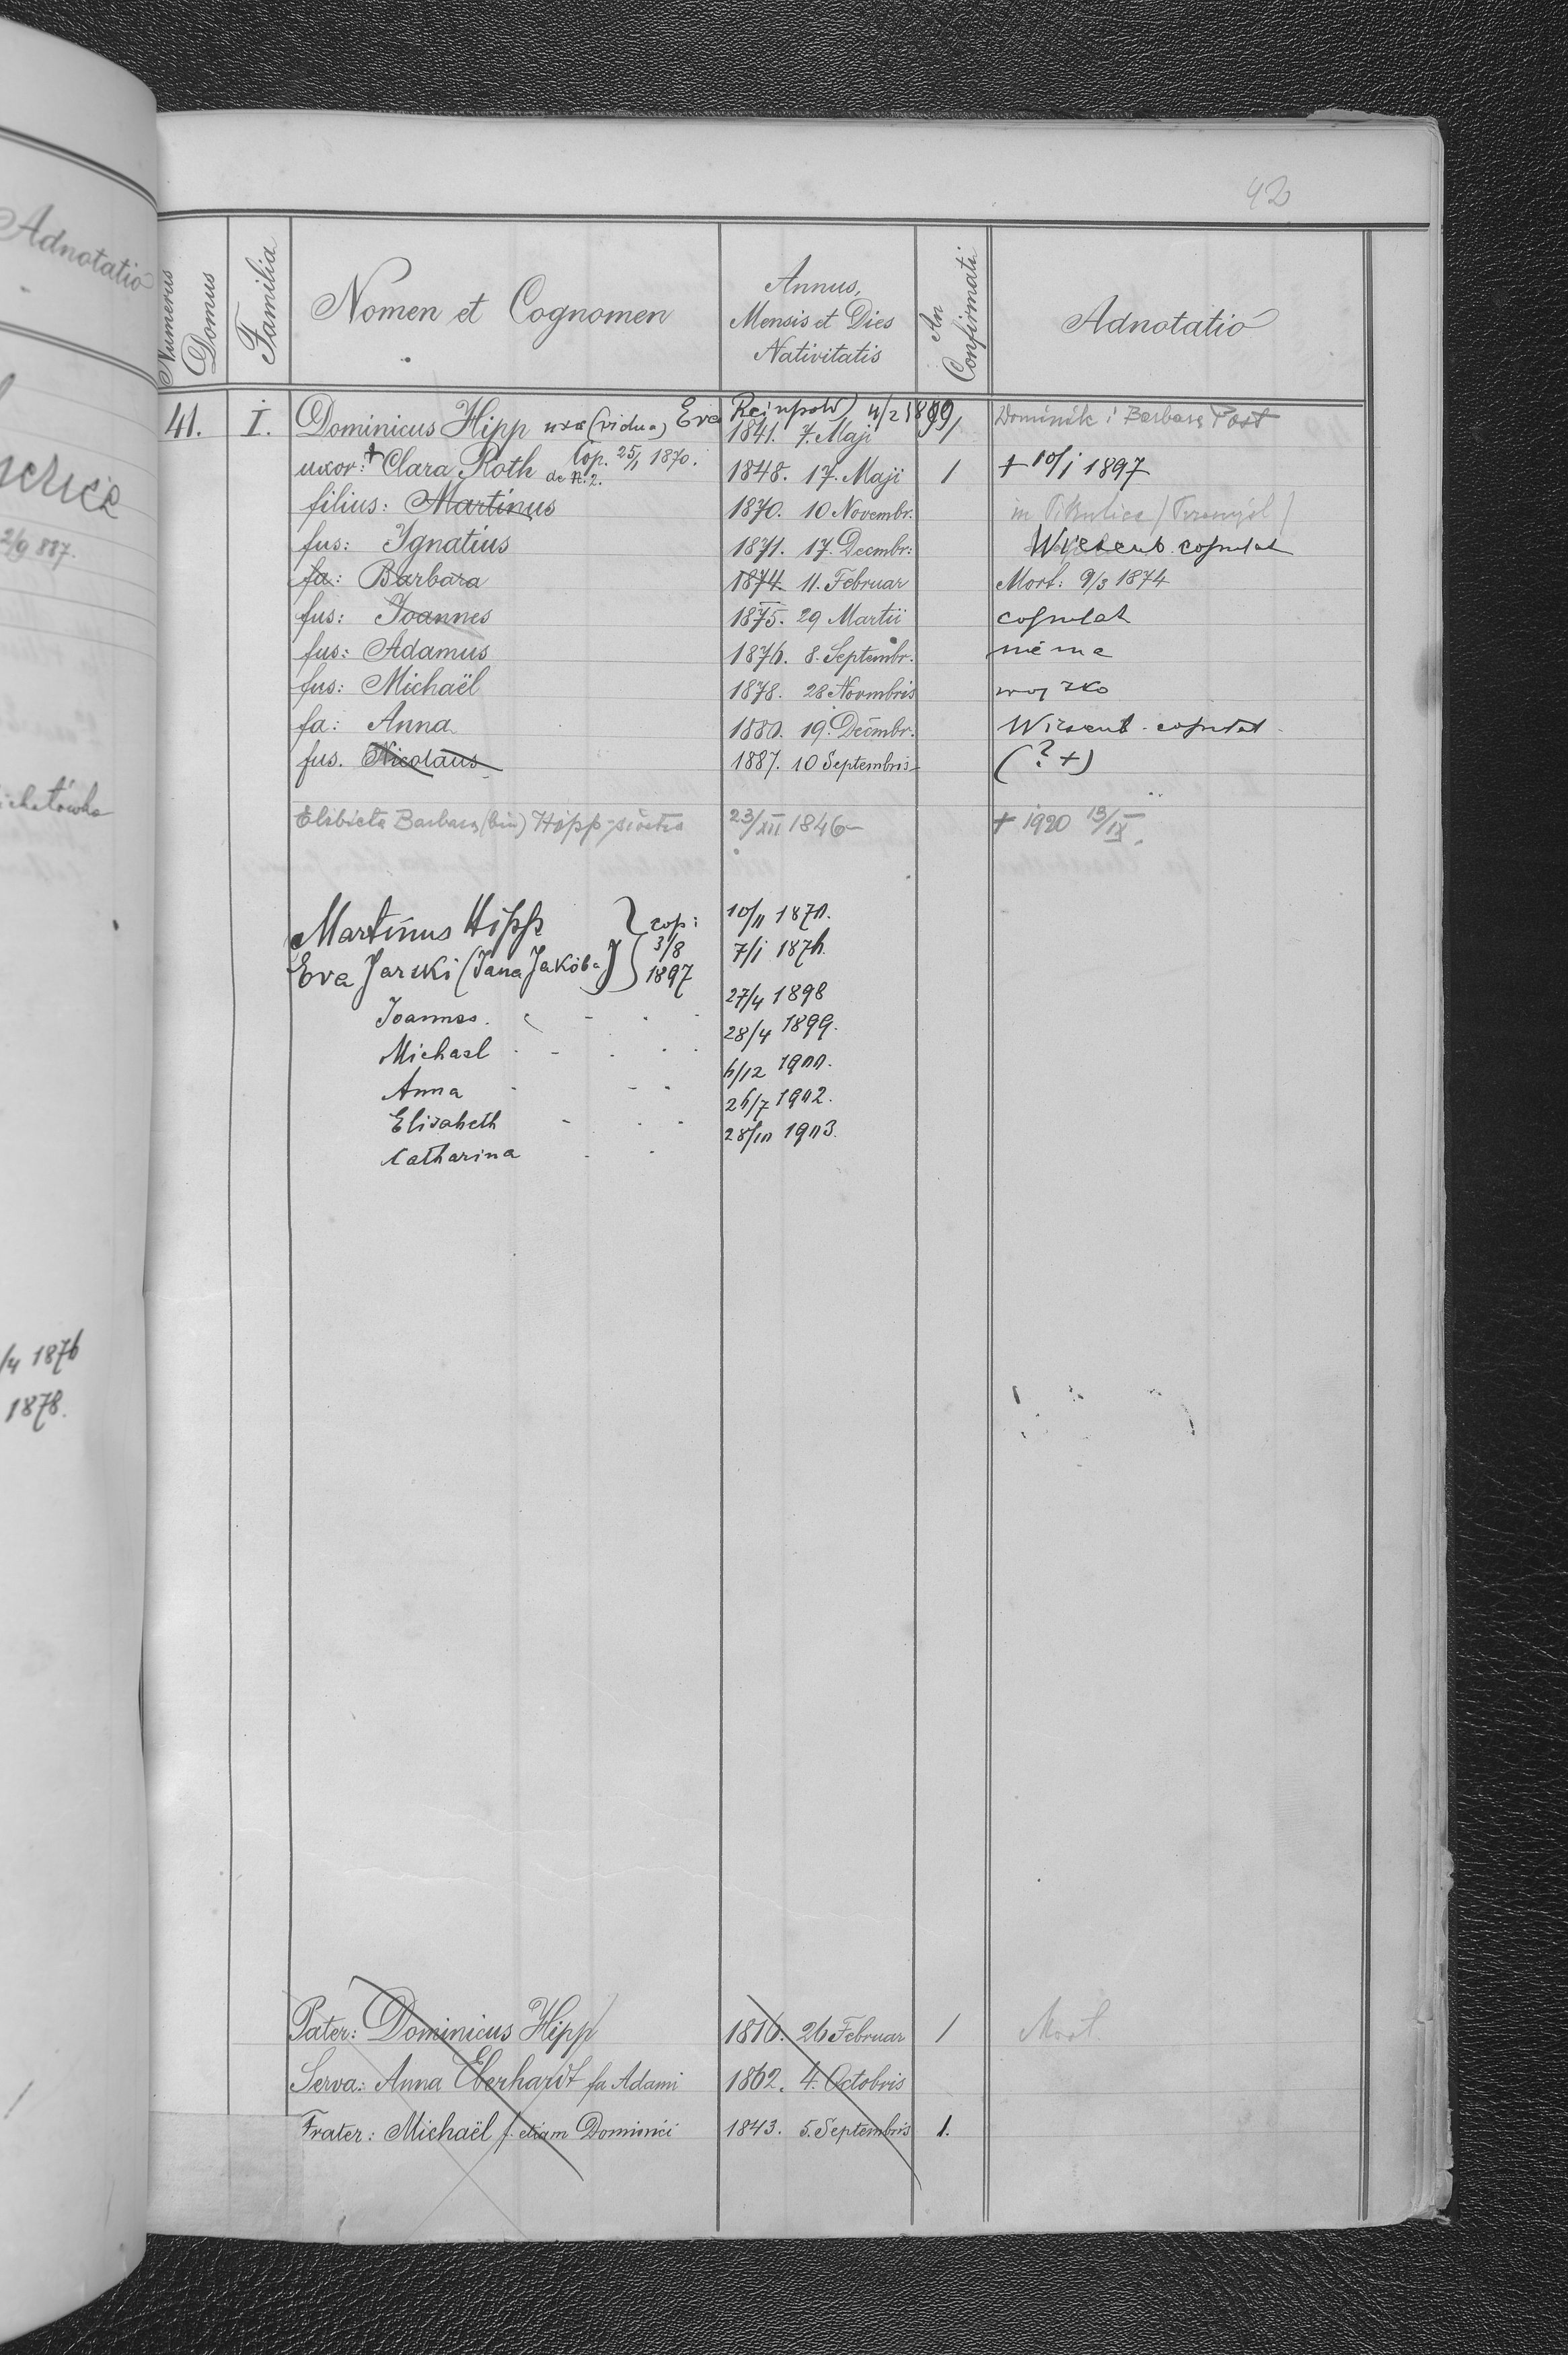 42
Adnotatio
Numerus Domus
Familia
Nomen et Cognomen
Annus, Mensis et Dies Nativitatis
An Confirmati
Adnotatio
41. I. Dominicus Hipp (vidua) Eva 4/2 1899 1841. 7. Maji 1 Dominik i Barbara Post
uxor: + Clara Roth Cop. 25/1 1870. de N: 2. 1848. 17. Maji 1 + 10/1 1897
filius: Martinus 1870. 10 Novembr. in Pikulice / Przemyśl /
fus: Ignatius 1871. 17. Decmbr: copulat
fa: Barbara 1874 11. Februar Mort: 9/3 1874
fus: Joannes 1875. 29 Martii copulat
fus: Adamus 1876. 8. Septembr. niema
fus: Michaël 1878. 28 Novmbris wojsko
fa: Anna 1880. 19. Decmbr. copulat
fus. Nicolaus 1887. 10 Septembris (? +)
Elżbieta Barbara (bin) Hipp siostra 23/XII 1846 + 1920 13/IX
Martinus Hipp cop: 10/11 1870.
Eva Jarski (Jana Jakóba) 3/8 1897 7/1 1876.
Joannes. 27/4 1898
Michael 28/4 1899.
Anna 6/12 1900.
Elisabeth 26/7 1902.
Catharina 28/10 1903.
Pater: Dominicus Hipp 1816. 26 Februar 1 Mort.
Serva: Anna Eberhardt fa Adami 1862. 4. Octobris
Frater: Michaël f. etiam Dominici 1843. 5. Septembris 1.
2/9 887.
/4 1876
1878.